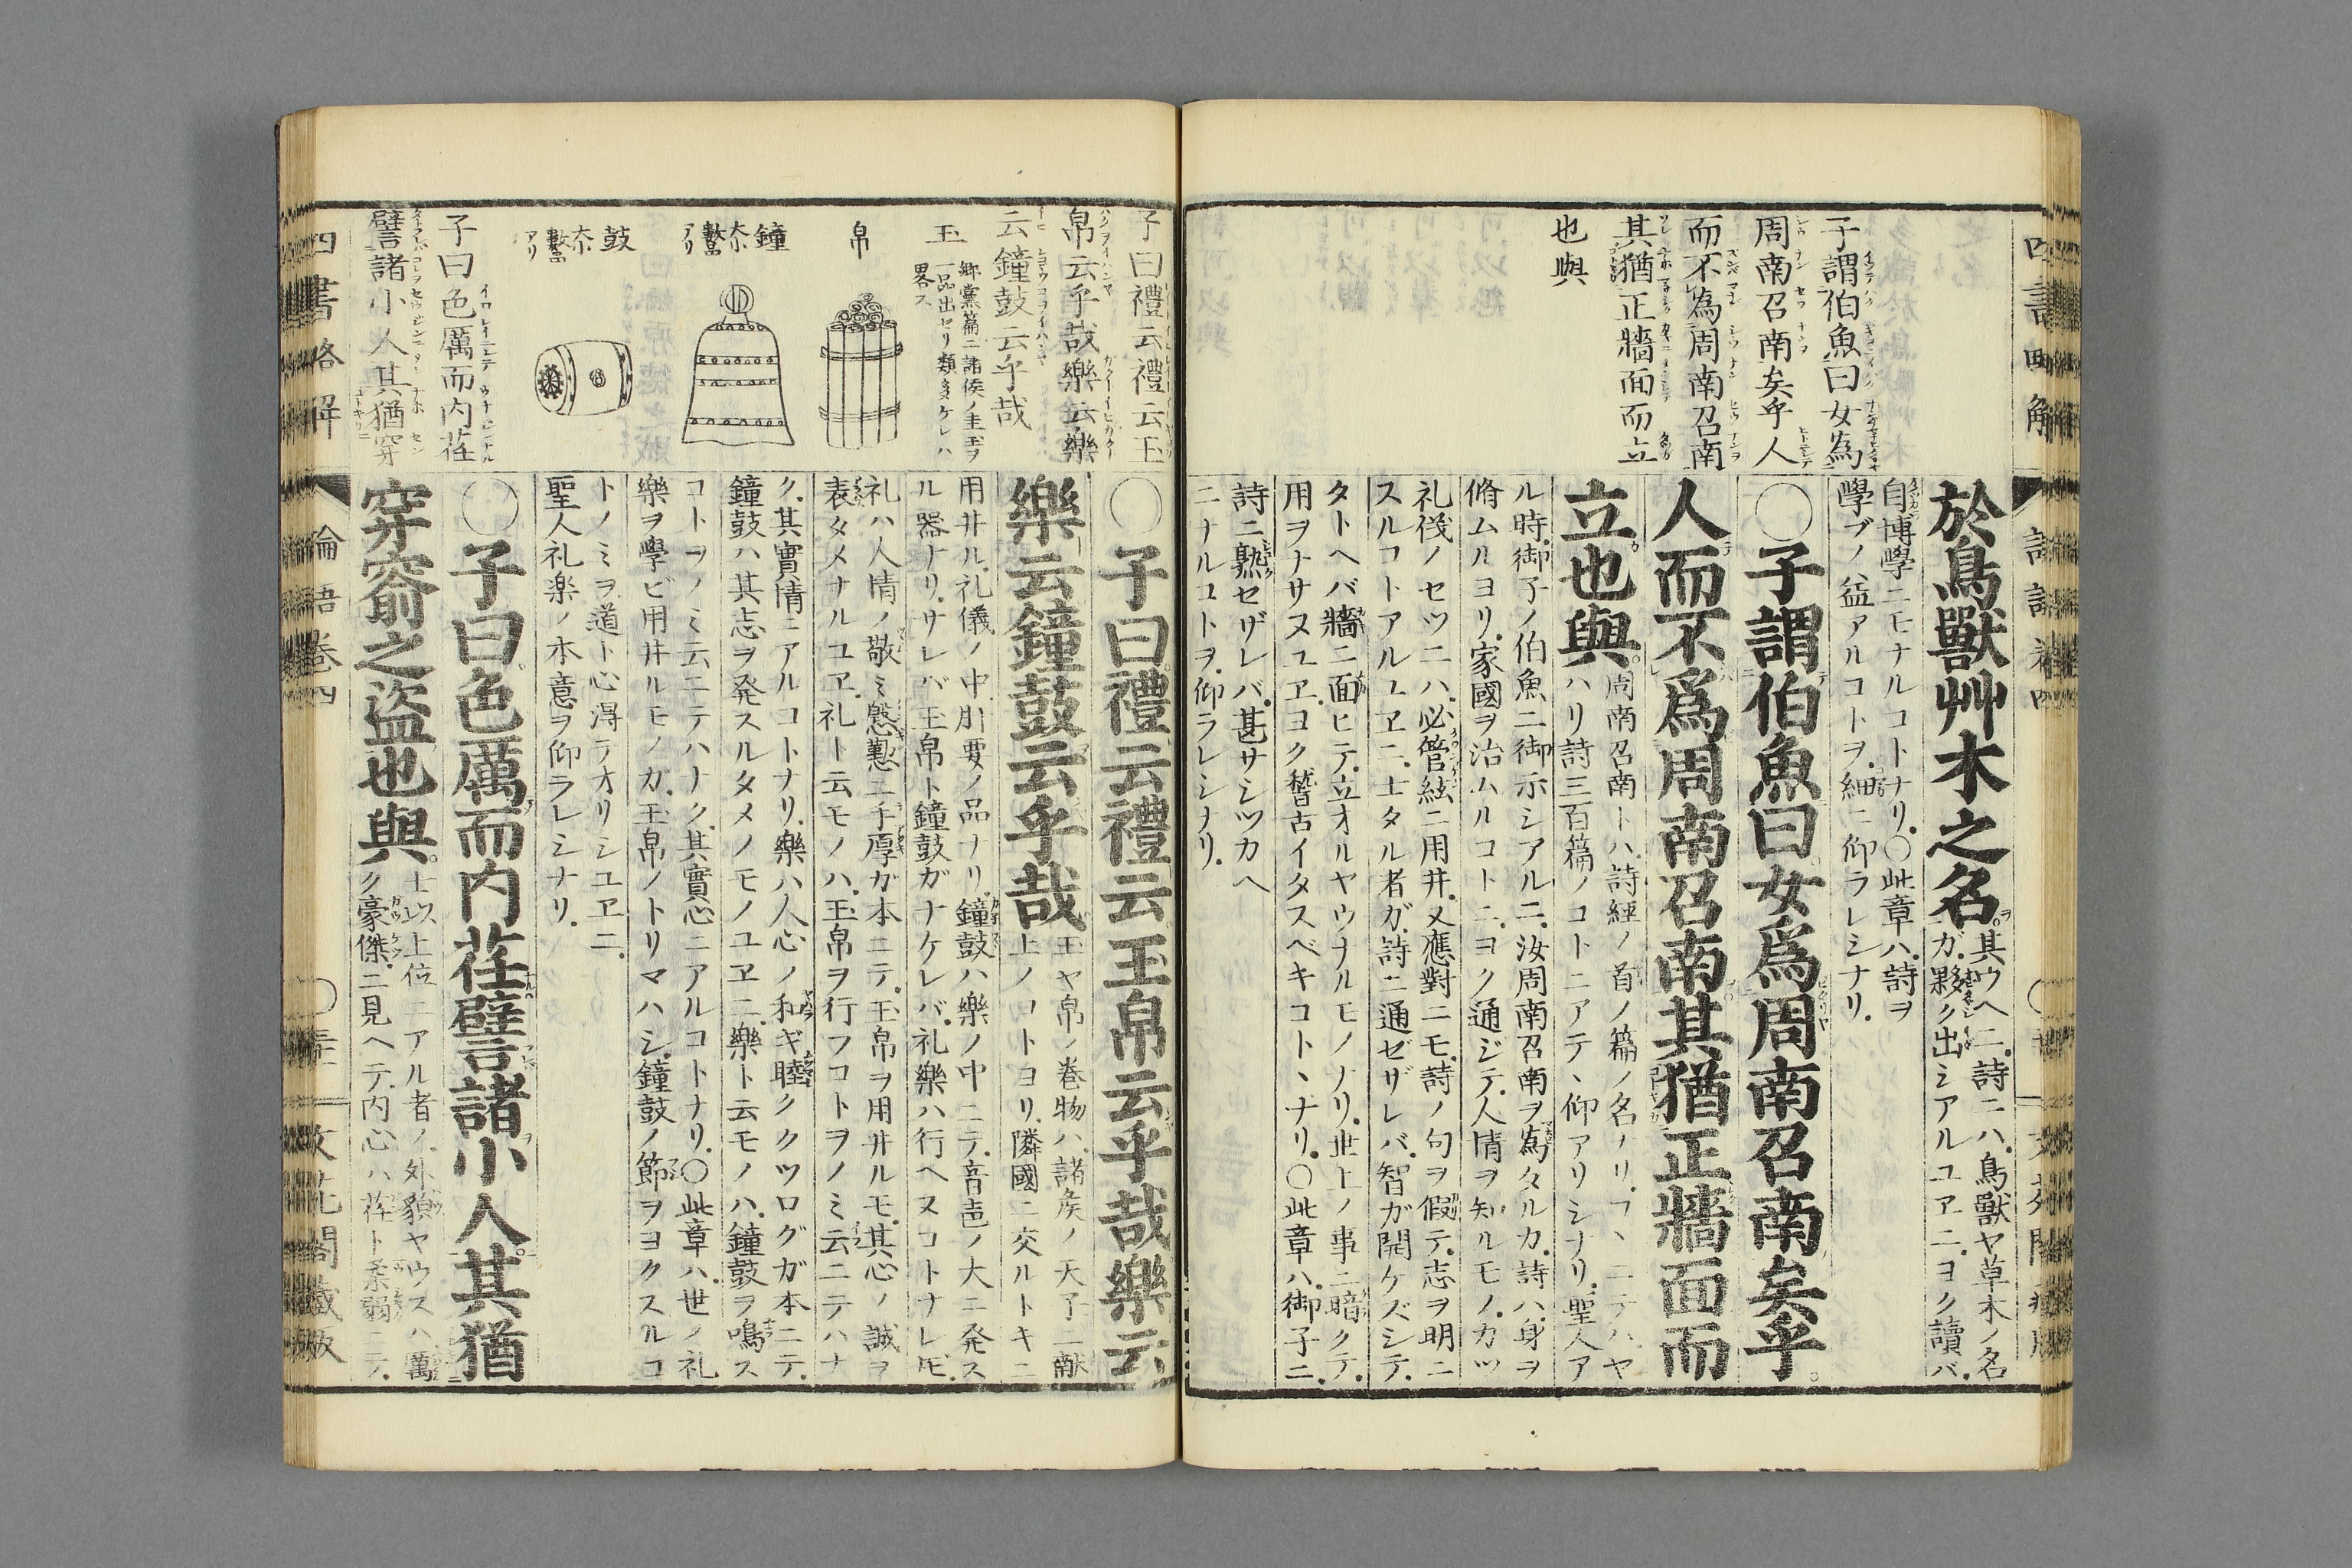 子謂伯魚曰女為
周南召南矣乎人
而不為周南召南
其猶正牆面而立
也與
於鳥獸艸木之名
其ウヘニ詩ニハ鳥獸ヤ草木ノ名
ガ夥ク出シアルユヱニヨク讀バ
自博學ニモナルコトナリ〇此章ハ詩ヲ
學ブノ益アルコトヲ細ニ仰ラレシナリ
〇子謂伯魚曰女爲周南召南矣乎
人而不爲周南召南其猶正牆面而
立也與
周南召南トハ詩經ノ首ノ篇ノ名ナリ
ハリ詩三百篇ノコトニアテ、仰アリシナリ聖人ア
ル時御子ノ伯魚ニ御示シアルニ汝周南召南ヲ為タルカ詩ハ身ヲ
脩ムルヨリ家國ヲ治ムルコトニヨク通ジテ人情ヲ知ルモノカツ
礼伐ノセツニハ必管絃ニ用井又應對ニモ詩ノ句ヲ假テ志ヲ明ニ
スルコトアルユヱニ士タル者ガ詩ニ通ゼザレバ智ガ開ケズシテ
タトヘバ牆ニ面ヒテ立オルヤウナルモノナリ世上ノ事ニ暗クテ
用ヲナサヌユヱヨク稽古イタスベキコト、ナリ〇此章ハ御子ニ
詩ニ熟セザレバ甚サシツカヘ
ニナルコトヲ仰ラレシナリ
子曰禮云禮云玉
帛云乎哉樂云樂
云鐘鼓云乎哉
玉
郷黨篇ニ諸侯ノ圭玉ヲ
一品出セリ類多ケレハ
畧ス
帛
鐘
鼓
子曰色厲而内荏
譬諸小人其猶穿
〇子曰禮云禮云玉帛云乎哉樂云
樂云鐘鼓云乎哉
玉ヤ帛ノ巻物ハ諸侯ノ天子ニ献
上ノコトヨリ隣國ニ交ルトキニ
用井ル礼儀ノ中肝要ノ品ナリ鐘鼓ハ樂ノ中ニテ音色ノ大ニ発ス
ル器ナリサレバ玉帛ト鐘鼓ガナケレバ礼樂ハ行ヘヌコトナレ𪜈
礼ハ人情ノ敬ミ慇懃ニ手厚ガ本ニテ玉帛ヲ用井ルモ其心ノ誠ヲ
表タメナルユヱ礼ト云モノハ玉帛ヲ行フコトヲノミ云ニテハナ
ク其實情ニアルコトナリ樂ハ人心ノ和ギ睦クククツログガ本ニテ
鐘鼓ハ其志ヲ発スルタメノモノユヱニ樂ト云モノハ鐘鼓ヲ鳴ス
コトヲノミ云ニテハナク其實心ニアルコトナリ〇此章ハ世ノ礼
樂ヲ學ビ用井ルモノガ玉帛ノトリマハシ鐘鼓ノ節ヲヨクスルコ
トノミヲ道ト心得テオリシユヱニ
聖人礼楽ノ本意ヲ仰ラレシナリ
〇子曰色厲而内荏譬諸小人其猶
穿窬之盜也與
士以上位ニアル者ノ外貌ヤウスハ厲
ク豪傑ニ見ヘテ内心ハ荏ト柔弱ニテ
四書略解
論語巻四
文花閣藏版